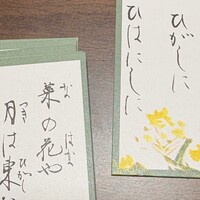 ひがしに
ひはにしに
な はな
菜の花や
つき ひがし
月は東に